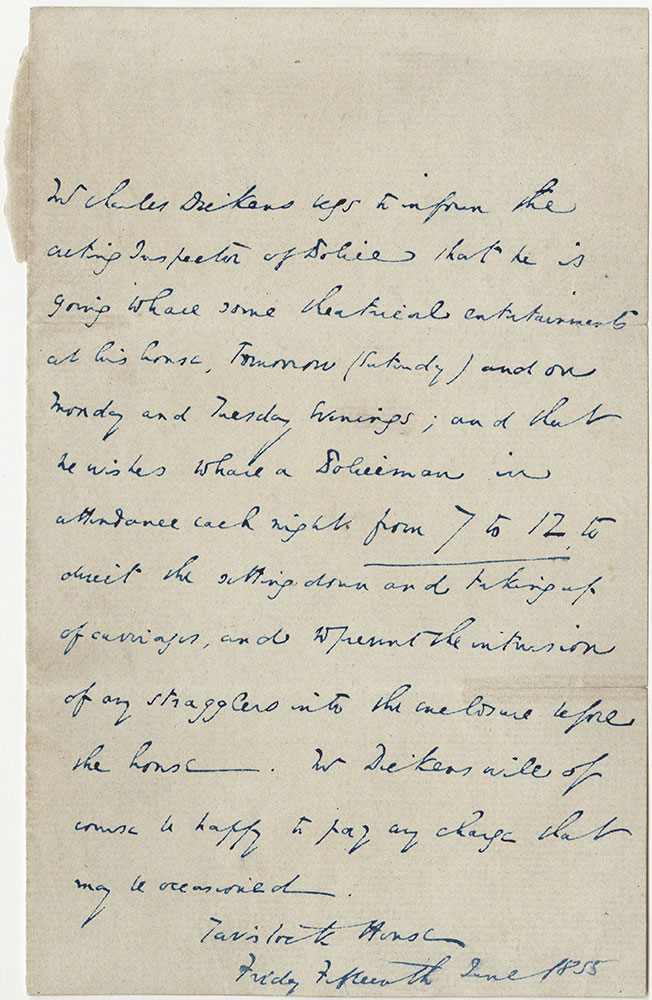 Mr Charles Dickens begs to inform the
acting Inspector of Police that he is
going to have some theatrical entertainments
at his house, tomorrow (Saturday) and on
Monday and Tuesday Evenings; and that
he wishes to have a Policeman in
attendance each night from 7 to 12, to
direct the setting down and taking up
of carriages, and to prevent the intrusion
of any stragglers into the enclosure before
the house. Mr Dickens will of
course be happy to pay any charge that
may be occasioned.
Tavistock House
Friday Fifteenth June 1855